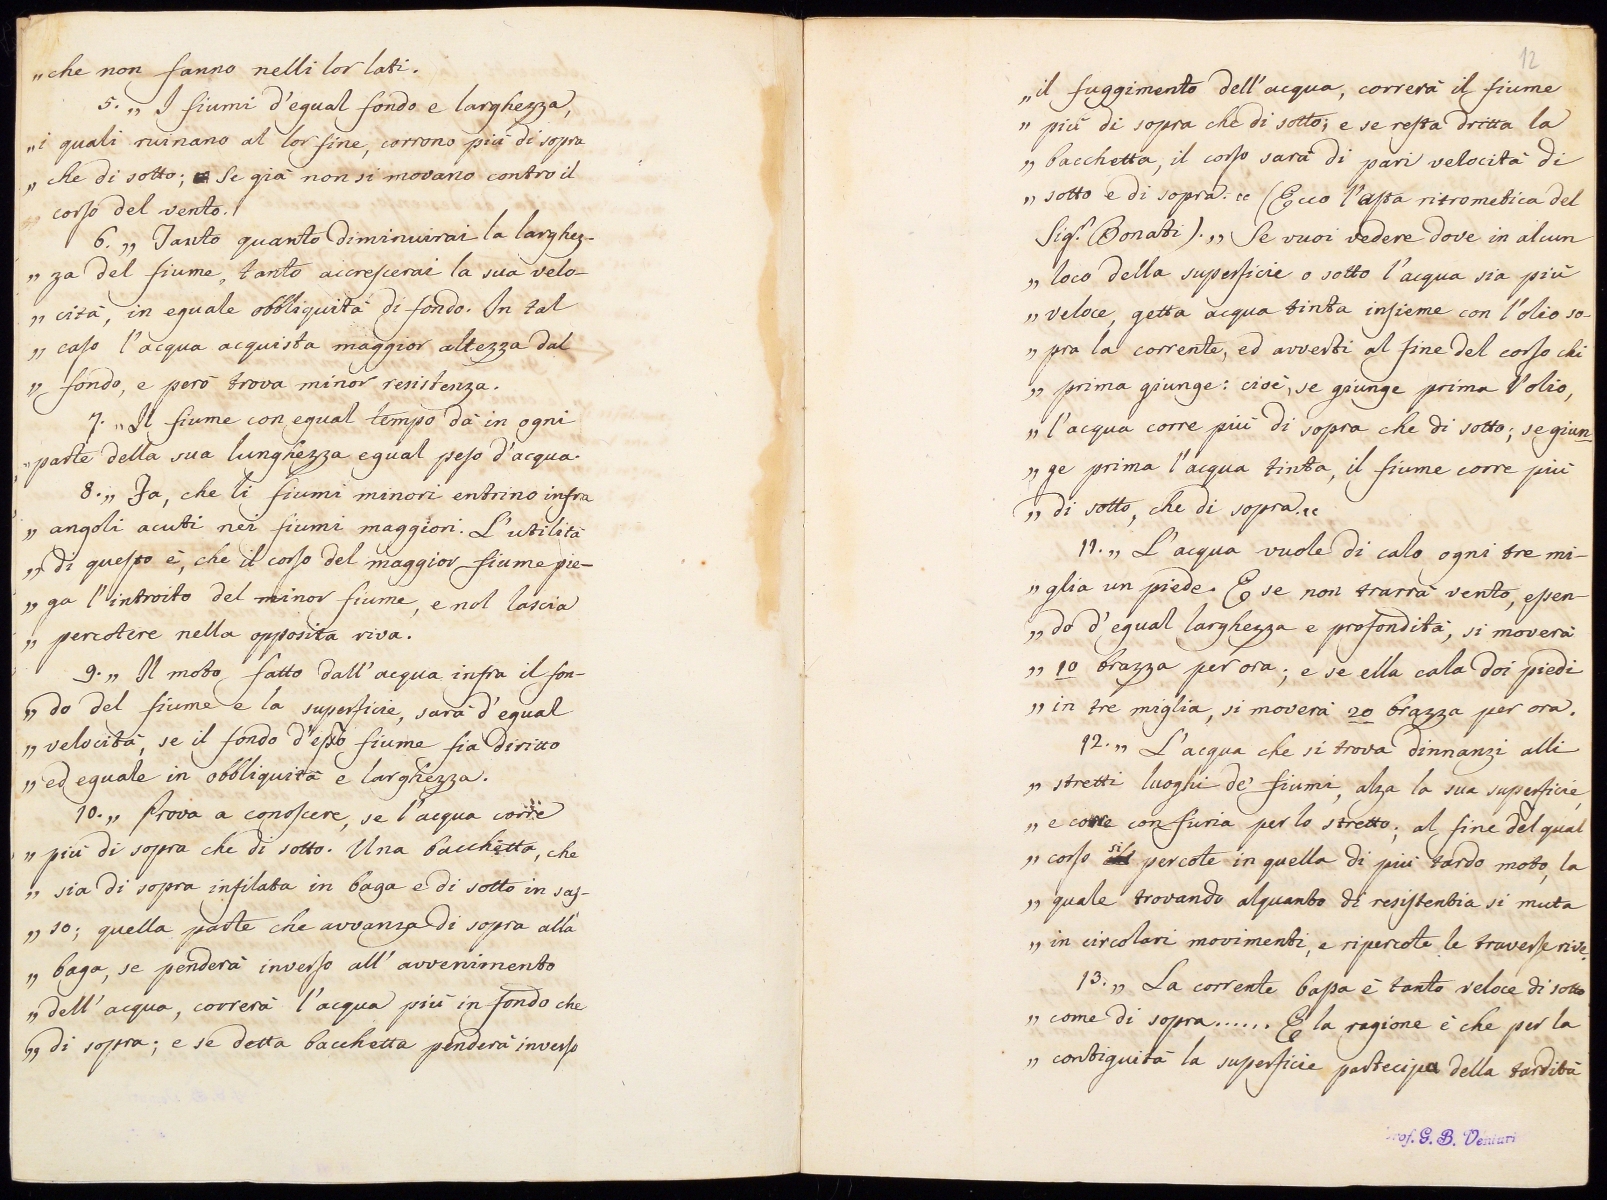 „ che non fanno nelli lor lati.
5. „ I fiumi d'egual fondo e larghezza,
„ i quali ruinano al lor fine, corrono più di sopra
„ che di sotto; Se già non si movano contro il
„ corso del vento.
6. „ Tanto quanto diminuirai la larghez-
„ za del fiume, tanto accrescerai la sua velo-
„ cità, in eguale obbliquità di fondo. In tal
„ caso l'acqua acquista maggior altezza dal
„ fondo, e però trova minor resistenza.
7. „ Il fiume con egual tempo dà in ogni
„ parte della sua lunghezza egual peso d'acqua.
8. „ Fa, che li fiumi minori entrino infra
„ angoli acuti nei fiumi maggiori. L'utilità
„ di questo è, che il corso del maggior fiume pie-
„ ga l'introito del minor fiume, e nol lascia
„ percotere nella opposita riva.
9. „ Il moto fatto dall'acqua infra il fon-
„ do del fiume e la superficie, sarà d'egual
„ velocità, se il fondo d'esso fiume sia diritto
„ ed eguale in obbliquità e larghezza.
10. „ Prova a conoscere, se l'acqua corre
„ più di sopra che di sotto. Una bacchetta, che
„ sia di sopra infilata in baga e di sotto in sas-
„ so; quella parte che avvanza di sopra alla
„ baga, se penderà inverso all'avvenimento
„ dell'acqua, correrà l'acqua più in fondo che
„ di sopra; e se detta bacchetta penderà inverso
12
„ il fuggimento dell'acqua, correrà il fiume
„ più di sopra che di sotto; e se resta dritta la
„ bacchetta, il corso sarà di pari velocità di
„ sotto e di sopra. „ (Ecco l'asta ritrometica del
Sig.r Bonati). „ Se vuoi vedere dove in alcun
„ loco della superficie o sotto l'acqua sia più
„ veloce, getta acqua tinta insieme con l'olio so-
„ pra la corrente, ed avverti al fine del corso chi
„ prima giunge: cioè, se giunge prima l'olio,
„ l'acqua corre più di sopra che di sotto; se giun-
„ ge prima l'acqua tinta, il fiume corre più
„ di sotto, che di sopra. „
11. „ L'acqua vuole di calo ogni tre mi-
„ glia un piede. E se non trarrà vento, essen-
„ do d'egual larghezza e profondità, si moverà
„ 10 brazza per ora; e se ella cala doi piedi
„ in tre miglia, si moverà 20 brazza per ora.
12. „ L'acqua che si trova dinnanzi alli
„ stretti luoghi de' fiumi, alza la sua superficie,
„ e corre con furia per lo stretto; al fine del qual
„ corso si percote in quella di più tardo moto, la
„ quale trovando alquanto di resistentia si muta
„ in circolari movimenti, e ripercote le traverse rive.
13. „ La corrente bassa è tanto veloce di sotto
„ come di sopra...... E la ragione è che per la
„ contiguità la superficie partecipa della tardità
Prof. G. B. Venturi